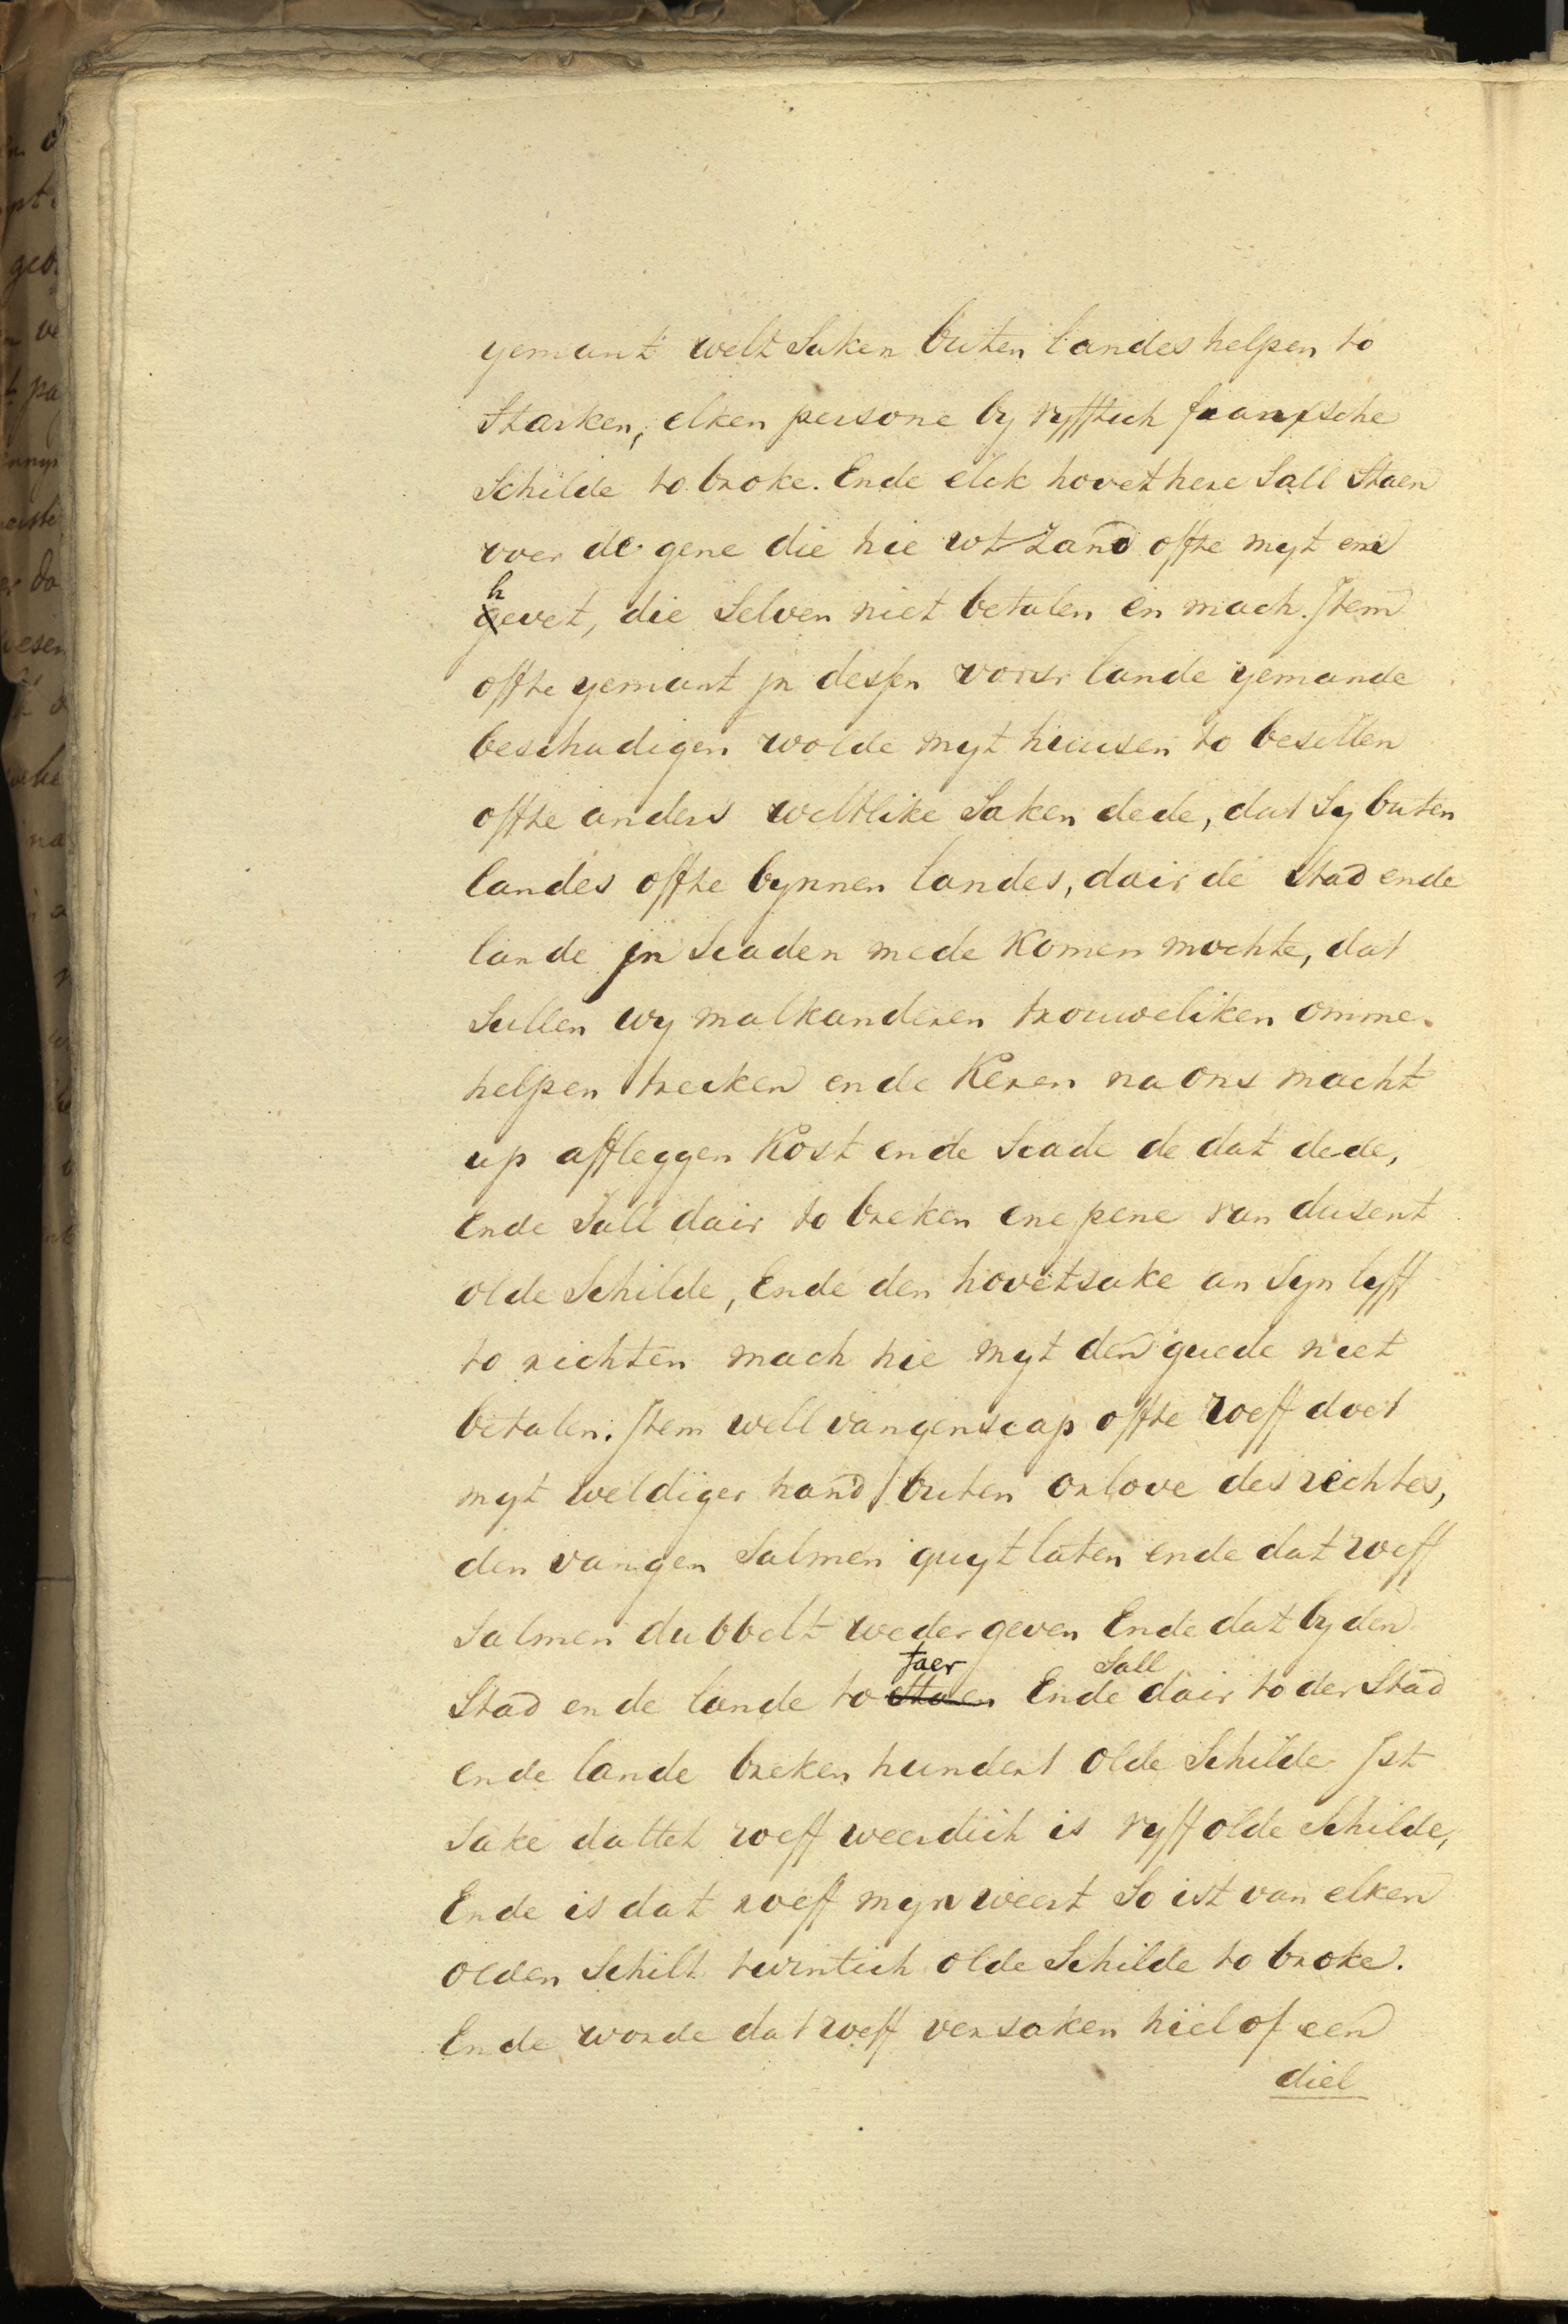 yemant welt Saken buten landes helpen to
Starken, elken persone by vyfftich franxsche
Schilde to broke. Ende elck hovethere Sall Staen
voer de gene die hie wt zand offte myt em
hevet, die Selven niet betalen en mach. Item
offte yemant jn dessen vorsr lande yemande
beschadigen wolde myt huusen to besetten
offte anders weltlike Saken dede, dat Sy buten
landes offte bynnen landes, dair de Stad ende
lande jn Scaden mede Komen mochte, dat
Sullen wy malkanderen trouweliken omme
helpen trecken ende Keren na ons macht
up affleggen Kost ende Scade de dat dede,
Ende Sall dair to breken ene pene van dusent
olde Schilde, Ende den hovetsake an Syn lyff
to richten mach hie myt den guede niet
betalen. Item well vangenscap offte roeff doet
myt weldiger hand buten orlove des rechtes,
den vangen Salmen quyt laten ende dat roeff
Salmen dubbelt weder geven Ende dat by den
Sall
Stad ende lande to Staen Ende dair to der Stad
ende lande breken hundert olde Schilde Ist
Sake dattet roeff weerdich is vyff olde Schilde,
Ende is dat roeff myn weert So ist van elken
olden Schilt twintich olde Schilde to broke.
Ende worde dat roeff versaken hiel of een
diel